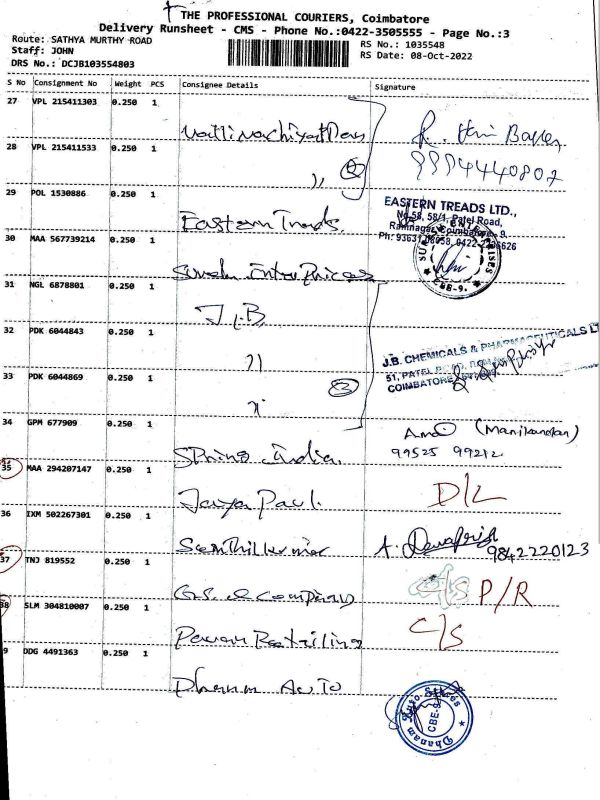 THE PROFESSIONAL COURIERS, Coimbatore
Delivery Runsheet - CMS - Phone No.:0422-3505555 - Page No.:3
Route: SATHYA MURTHY ROAD
Staff: JOHN
DRS No.: DCJB103554803
RS No.: 1035548
RS Date: 08-Oct-2022
S No Consignment No Weight PCS Consignee Details Signature
27 VPL 215411303 0.250 1
28 VPL 215411533 0.250 1
,, 2
9994440807
29 POL 1530886 0.250 1
Eastern Treads
EASTERN TREADS LTD.,
No.58, 58/1, Patel Road,
Ramnagar, Coimbatore - 9.
30 MAA 567739214 0.250 1
Enterprices
CBE-9.
31 NGL 6878801 0.250 1
J.B
32 PDK 6044843 0.250 1
,,
J.B. CHEMICALS & PHARMACEUTICALS
51, PATEL
COIMBATORE
33 PDK 6044869 0.250 1
,, 3
34 GPM 677909 0.250 1
Spring India
(Manikandan)
99525 99212
35 MAA 294207147 0.250 1
Jaya Paul
D/L
36 IXM 502267301 0.250 1
Senthilkumar
9842220123
37 TNJ 819552 0.250 1
G.S. & Company
C/S P/R
38 SLM 304810007 0.250 1
Pawan Retailing
C/S
9 DDG 4491363 0.250 1
Dhanam Auto
Dhanam Auto Stores
CBE-9